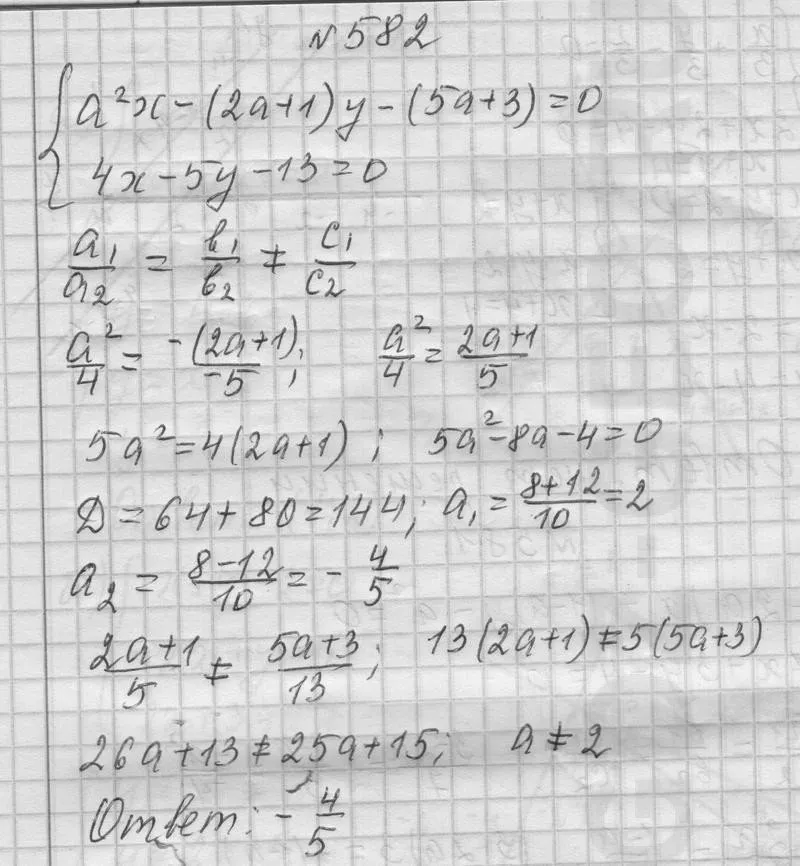 №582
{ a²x-(2a+1)y-(5a+3)=0
4x-5y-13=0
a₁/a₂ = b₁/b₂ ≠ c₁/c₂
a²/4 = -(2a+1)/-5; a²/4 = 2a+1/5
5a²=4(2a+1); 5a²-8a-4=0
D=64+80=144; a₁=8+12/10=2
a₂=8-12/10=-4/5
2a+1/5 ≠ 5a+3/13; 13(2a+1)≠5(5a+3)
26a+13≠25a+15; a≠2
Ответ: -4/5